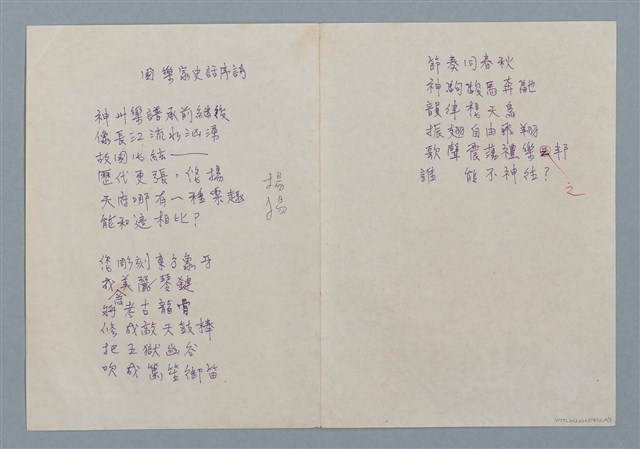 國樂家史話序詩
神州樂譜承前繼後
像長江流水汹湧
故國心結——
歷代更張，悠揚
天府哪有一種樂趣
能和這相比？
揚
揚
您彫刻東方象牙
成美麗琴鍵
為
將考古龍骨
修成敲天鼓棒
把五獄幽谷
吹成簫笙鄉笛
節奏同春秋
神駒駿馬奔馳
韻律想天鳥
振翅自由飛翔
歌聲震蕩禮樂邦
之
誰 能不神往？